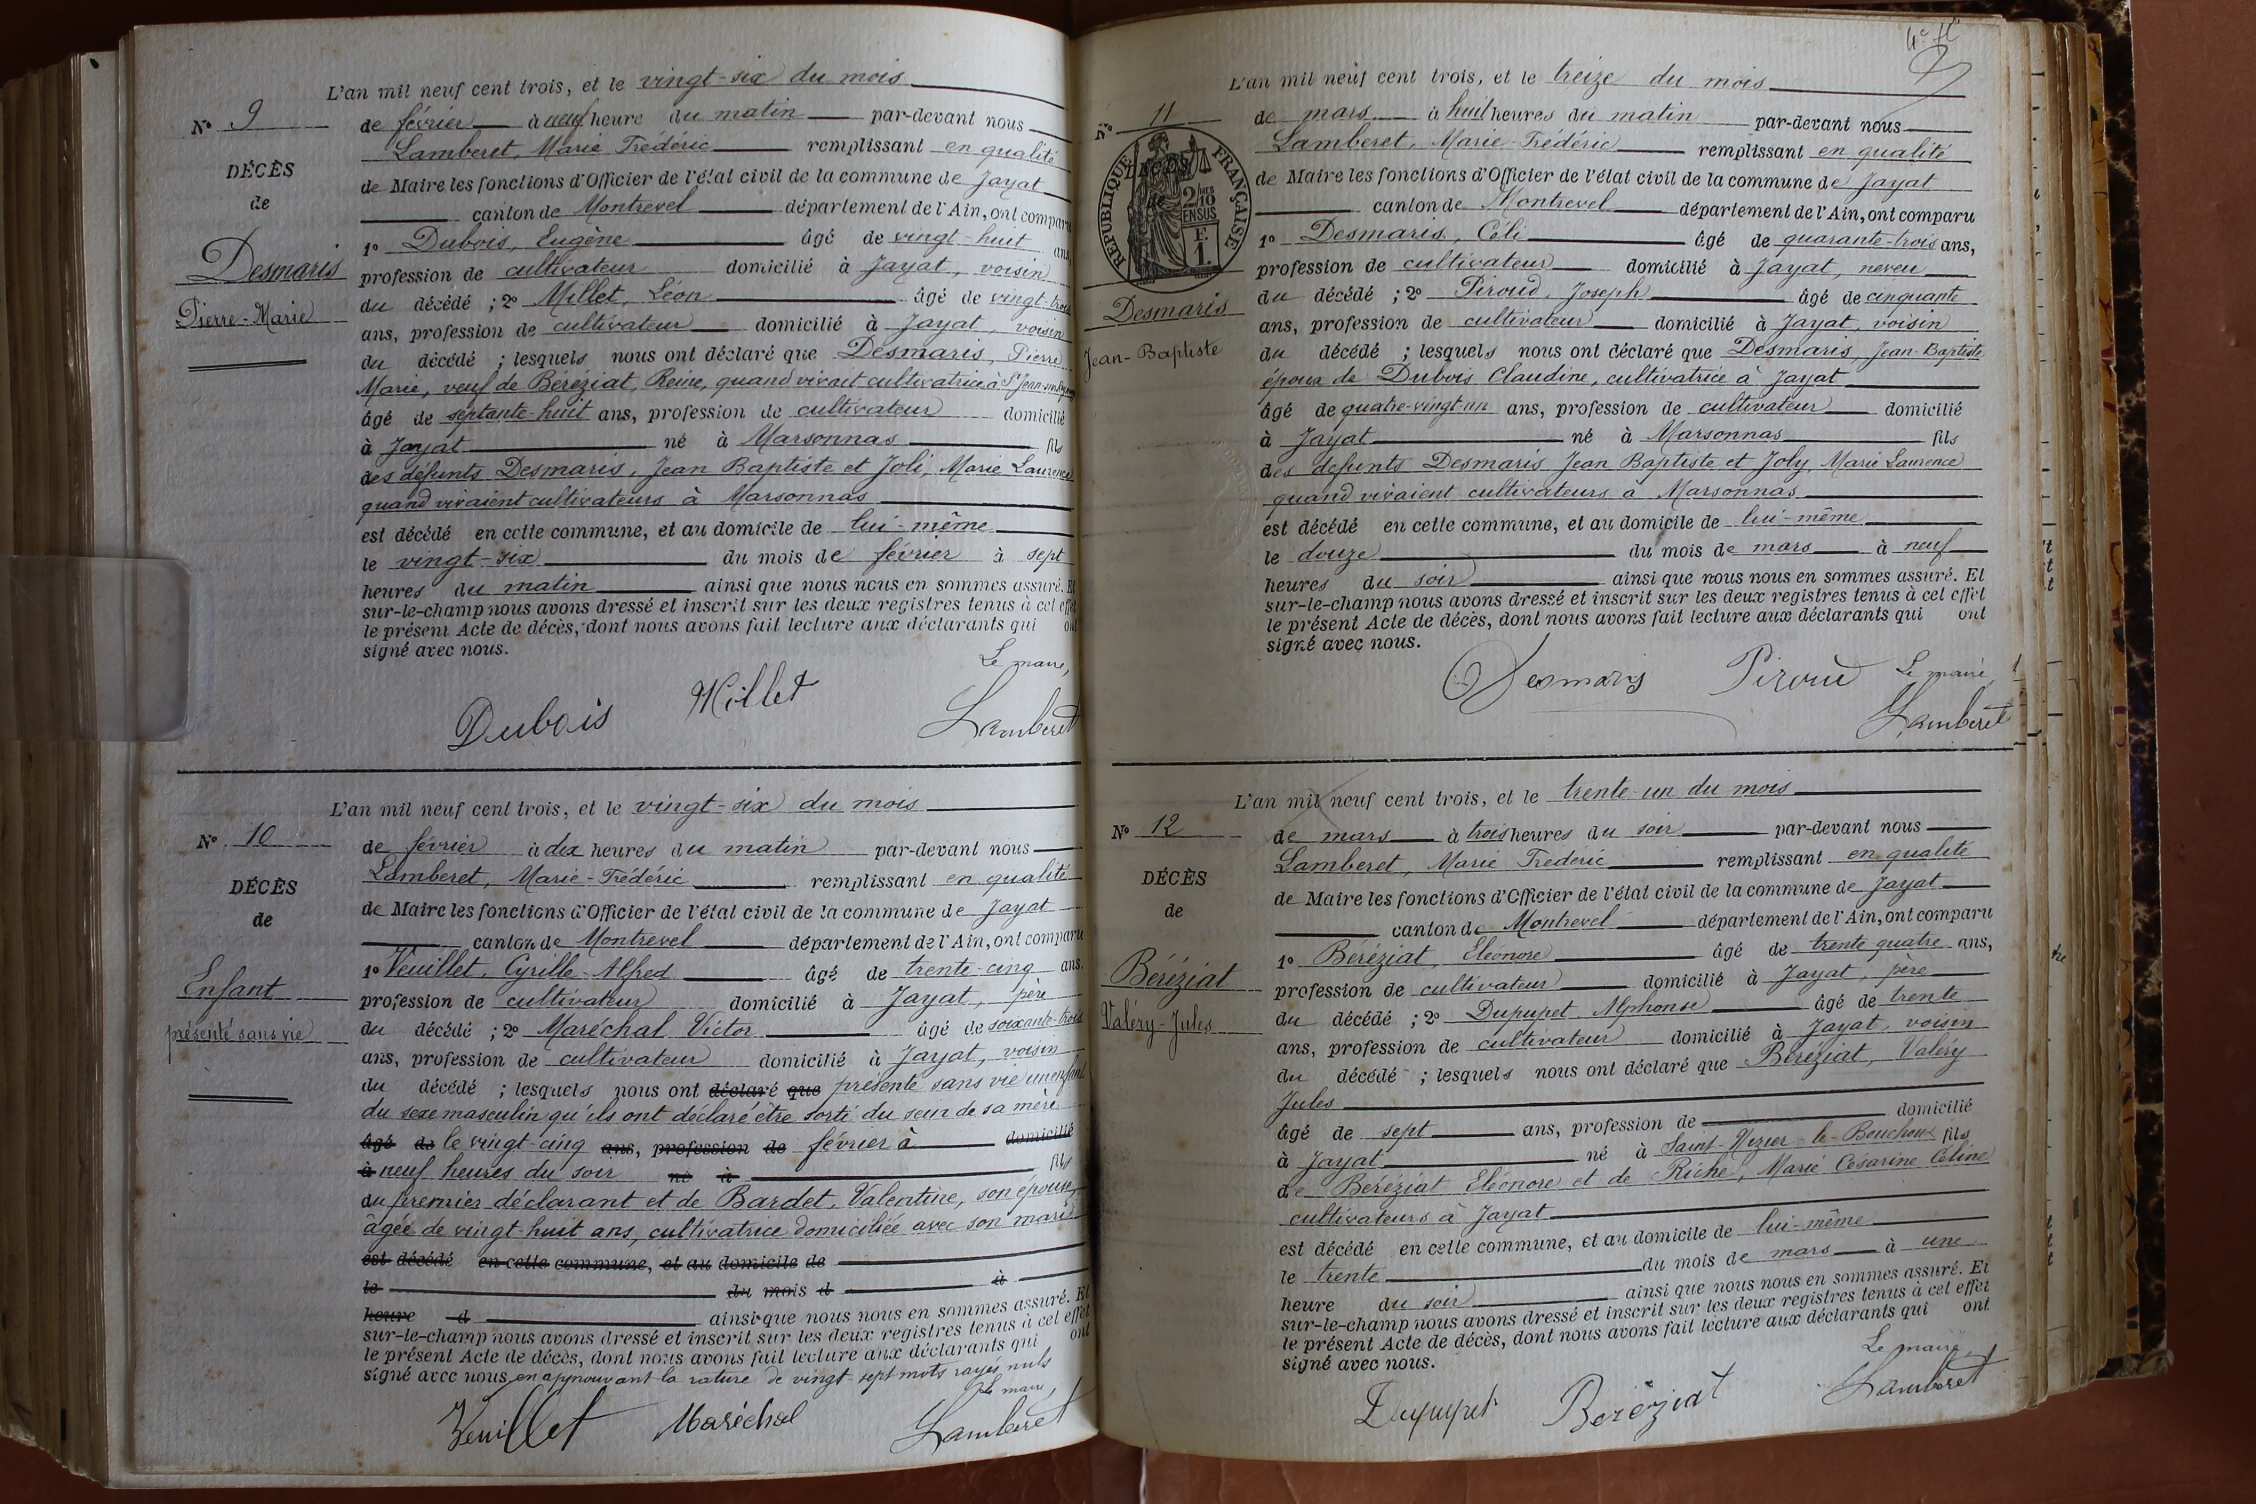 L'an mil neuf cent trois, et le vingt-six du mois
N° 9
de février à neuf heure du matin par-devant nous
Lamberet, Marie Frédéric remplissant en qualité
DÉCÈS
de Maire les fonctions d'Officier de l'état civil de la commune de Jayat
de
canton de Montrevel département de l'Ain, ont comparu
1° Dubois, Eugène âgé de vingt-huit ans,
Desmaris
profession de cultivateur domicilié à Jayat, voisin
Pierre-Marie
du décédé ; 2° Millet, Léon âgé de vingt-trois
ans, profession de cultivateur domicilié à Jayat, voisin
du décédé ; lesquels nous ont déclaré que Desmaris, Pierre
Marie, veuf de Béréziat, Reine, quand vivait cultivatrice à St Jean-sur-
âgé de septante-huit ans, profession de cultivateur domicilié
à Jayat né à Marsonnas fils
des défunts Desmaris, Jean Baptiste et Joli, Marie Laurence
quand vivaient cultivateurs à Marsonnas
est décédé en cette commune, et au domicile de lui-même
le vingt-six du mois de février à sept
heures du matin ainsi que nous nous en sommes assuré. Et
sur-le-champ nous avons dressé et inscrit sur les deux registres tenus à cet effet
le présent Acte de décès, dont nous avons fait lecture aux déclarants qui ont
signé avec nous.
Le maire,
Dubois Millet Lamberet
L'an mil neuf cent trois, et le vingt-six du mois
N° 10
de février à dix heures du matin par-devant nous
Lamberet, Marie-Frédéric remplissant en qualité
DÉCÈS
de Maire les fonctions d'Officier de l'état civil de la commune de Jayat
de
canton de Montrevel département de l'Ain, ont comparu
1° Veuillet, Cyrille-Alfred âgé de trente-cinq ans.
Enfant
profession de cultivateur domicilié à Jayat, père
présenté sans vie
du décédé ; 2° Maréchal Victor âgé de soixante-trois
ans, profession de cultivateur domicilié à Jayat, voisin
du décédé ; lesquels nous ont déclaré que présenté sans vie un enfant
du sexe masculin qu'ils ont déclaré être sorti du sein de sa mère
âgé de le vingt-cinq ans, profession de février à domicilié
à neuf heures du soir né à fils
du premier déclarant et de Bardet, Valentine, son épouse,
âgée de vingt-huit ans, cultivatrice domiciliée avec son mari
est décédé en cette commune, et au domicile de
le du mois d à
heure d ainsi que nous nous en sommes assuré. Et
sur-le-champ nous avons dressé et inscrit sur les deux registres tenus à cet effet
le présent Acte de décès, dont nous avons fait lecture aux déclarants qui ont
signé avec nous en approuvant la rature de vingt-sept mots rayés nuls
Le maire,
Veuillet Maréchal Lamberet
L'an mil neuf cent trois, et le treize du mois
N° 11
de mars à huit heures du matin par-devant nous
Lamberet, Marie-Frédéric remplissant en qualité
DÉCÈS
RÉPUBLIQUE FRANÇAISE
2/10 EN SUS
F. 1.
de Maire les fonctions d'Officier de l'état civil de la commune de Jayat
de
canton de Montrevel département de l'Ain, ont comparu
1° Desmaris, Céli âgé de quarante-trois ans,
profession de cultivateur domicilié à Jayat, neveu
Desmaris
du décédé ; 2° Piroud, Joseph âgé de cinquante
ans, profession de cultivateur domicilié à Jayat, voisin
Jean-Baptiste
du décédé ; lesquels nous ont déclaré que Desmaris, Jean-Baptiste
époux de Dubois Claudine, cultivatrice à Jayat
âgé de quatre-vingt-un ans, profession de cultivateur domicilié
à Jayat né à Marsonnas fils
des défunts Desmaris Jean Baptiste et Joly, Marie Laurence
quand vivaient cultivateurs à Marsonnas
est décédé en cette commune, et au domicile de lui-même
le douze du mois de mars à neuf
heures du soir ainsi que nous nous en sommes assuré. Et
sur-le-champ nous avons dressé et inscrit sur les deux registres tenus à cet effet
le présent Acte de décès, dont nous avons fait lecture aux déclarants qui ont
signé avec nous.
Desmaris Piroud Le maire,
Lamberet
L'an mil neuf cent trois, et le trente-un du mois
N° 12
de mars à trois heures du soir par-devant nous
Lamberet, Marie Frédéric remplissant en qualité
DÉCÈS
de Maire les fonctions d'Officier de l'état civil de la commune de Jayat
de
canton de Montrevel département de l'Ain, ont comparu
1° Béréziat, Eléonore âgé de trente quatre ans,
Béréziat
profession de cultivateur domicilié à Jayat, père
Valéry-Jules
du décédé ; 2° Dupupet Alphonse âgé de trente
ans, profession de cultivateur domicilié à Jayat, voisin
du décédé ; lesquels nous ont déclaré que Béréziat, Valéry
Jules
âgé de sept ans, profession de domicilié
à Jayat né à Saint-Nizier-le-Bouchoux fils
de Béréziat Eléonore et de Riche, Marie Césarine Céline
cultivateurs à Jayat
est décédé en cette commune, et au domicile de lui-même
le trente du mois de mars à une
heure du soir ainsi que nous nous en sommes assuré. Et
sur-le-champ nous avons dressé et inscrit sur les deux registres tenus à cet effet
le présent Acte de décès, dont nous avons fait lecture aux déclarants qui ont
signé avec nous.
Le maire,
Dupupet Béréziat Lamberet